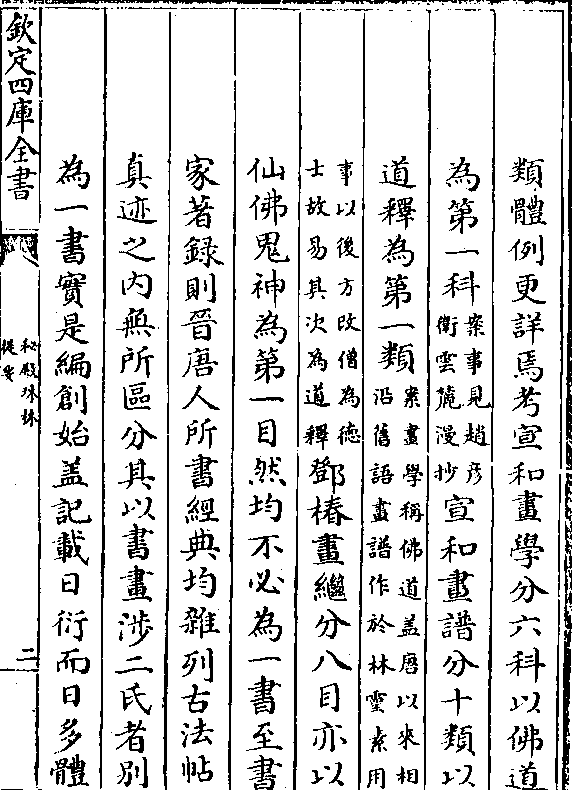 類體例更詳焉考宣和畫學分六科以佛道
為第一科案事見趙彦衛雲麓漫抄宣和畫譜分十類以
道釋為第一類案畫學稱佛道蓋唐以來相沿舊語畫譜作於林靈素用
事以後方改僧為德士故易其次為道釋鄧椿畫繼分八目亦以
仙佛鬼神為第一目然均不必為一書至書
家著録則晉唐人所書經典均雜列古法帖
真迹之内無所區分其以書畫涉二氏者别
為一書實是編創始蓋記載日衍而日多體
欽定四庫全書
秘殿珠林
提要
二